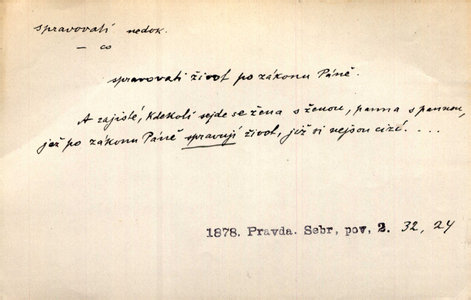 spravovati nedok.
– co
spravovati život po zákonu Páně.
A zajisté, kdekoli sejde se žena s ženou, panna s pannou,
jež po zákonu Páně spravují život, již si nejsou cizé. ...
1878. Pravda. Sebr, pov, 2. 32, 24